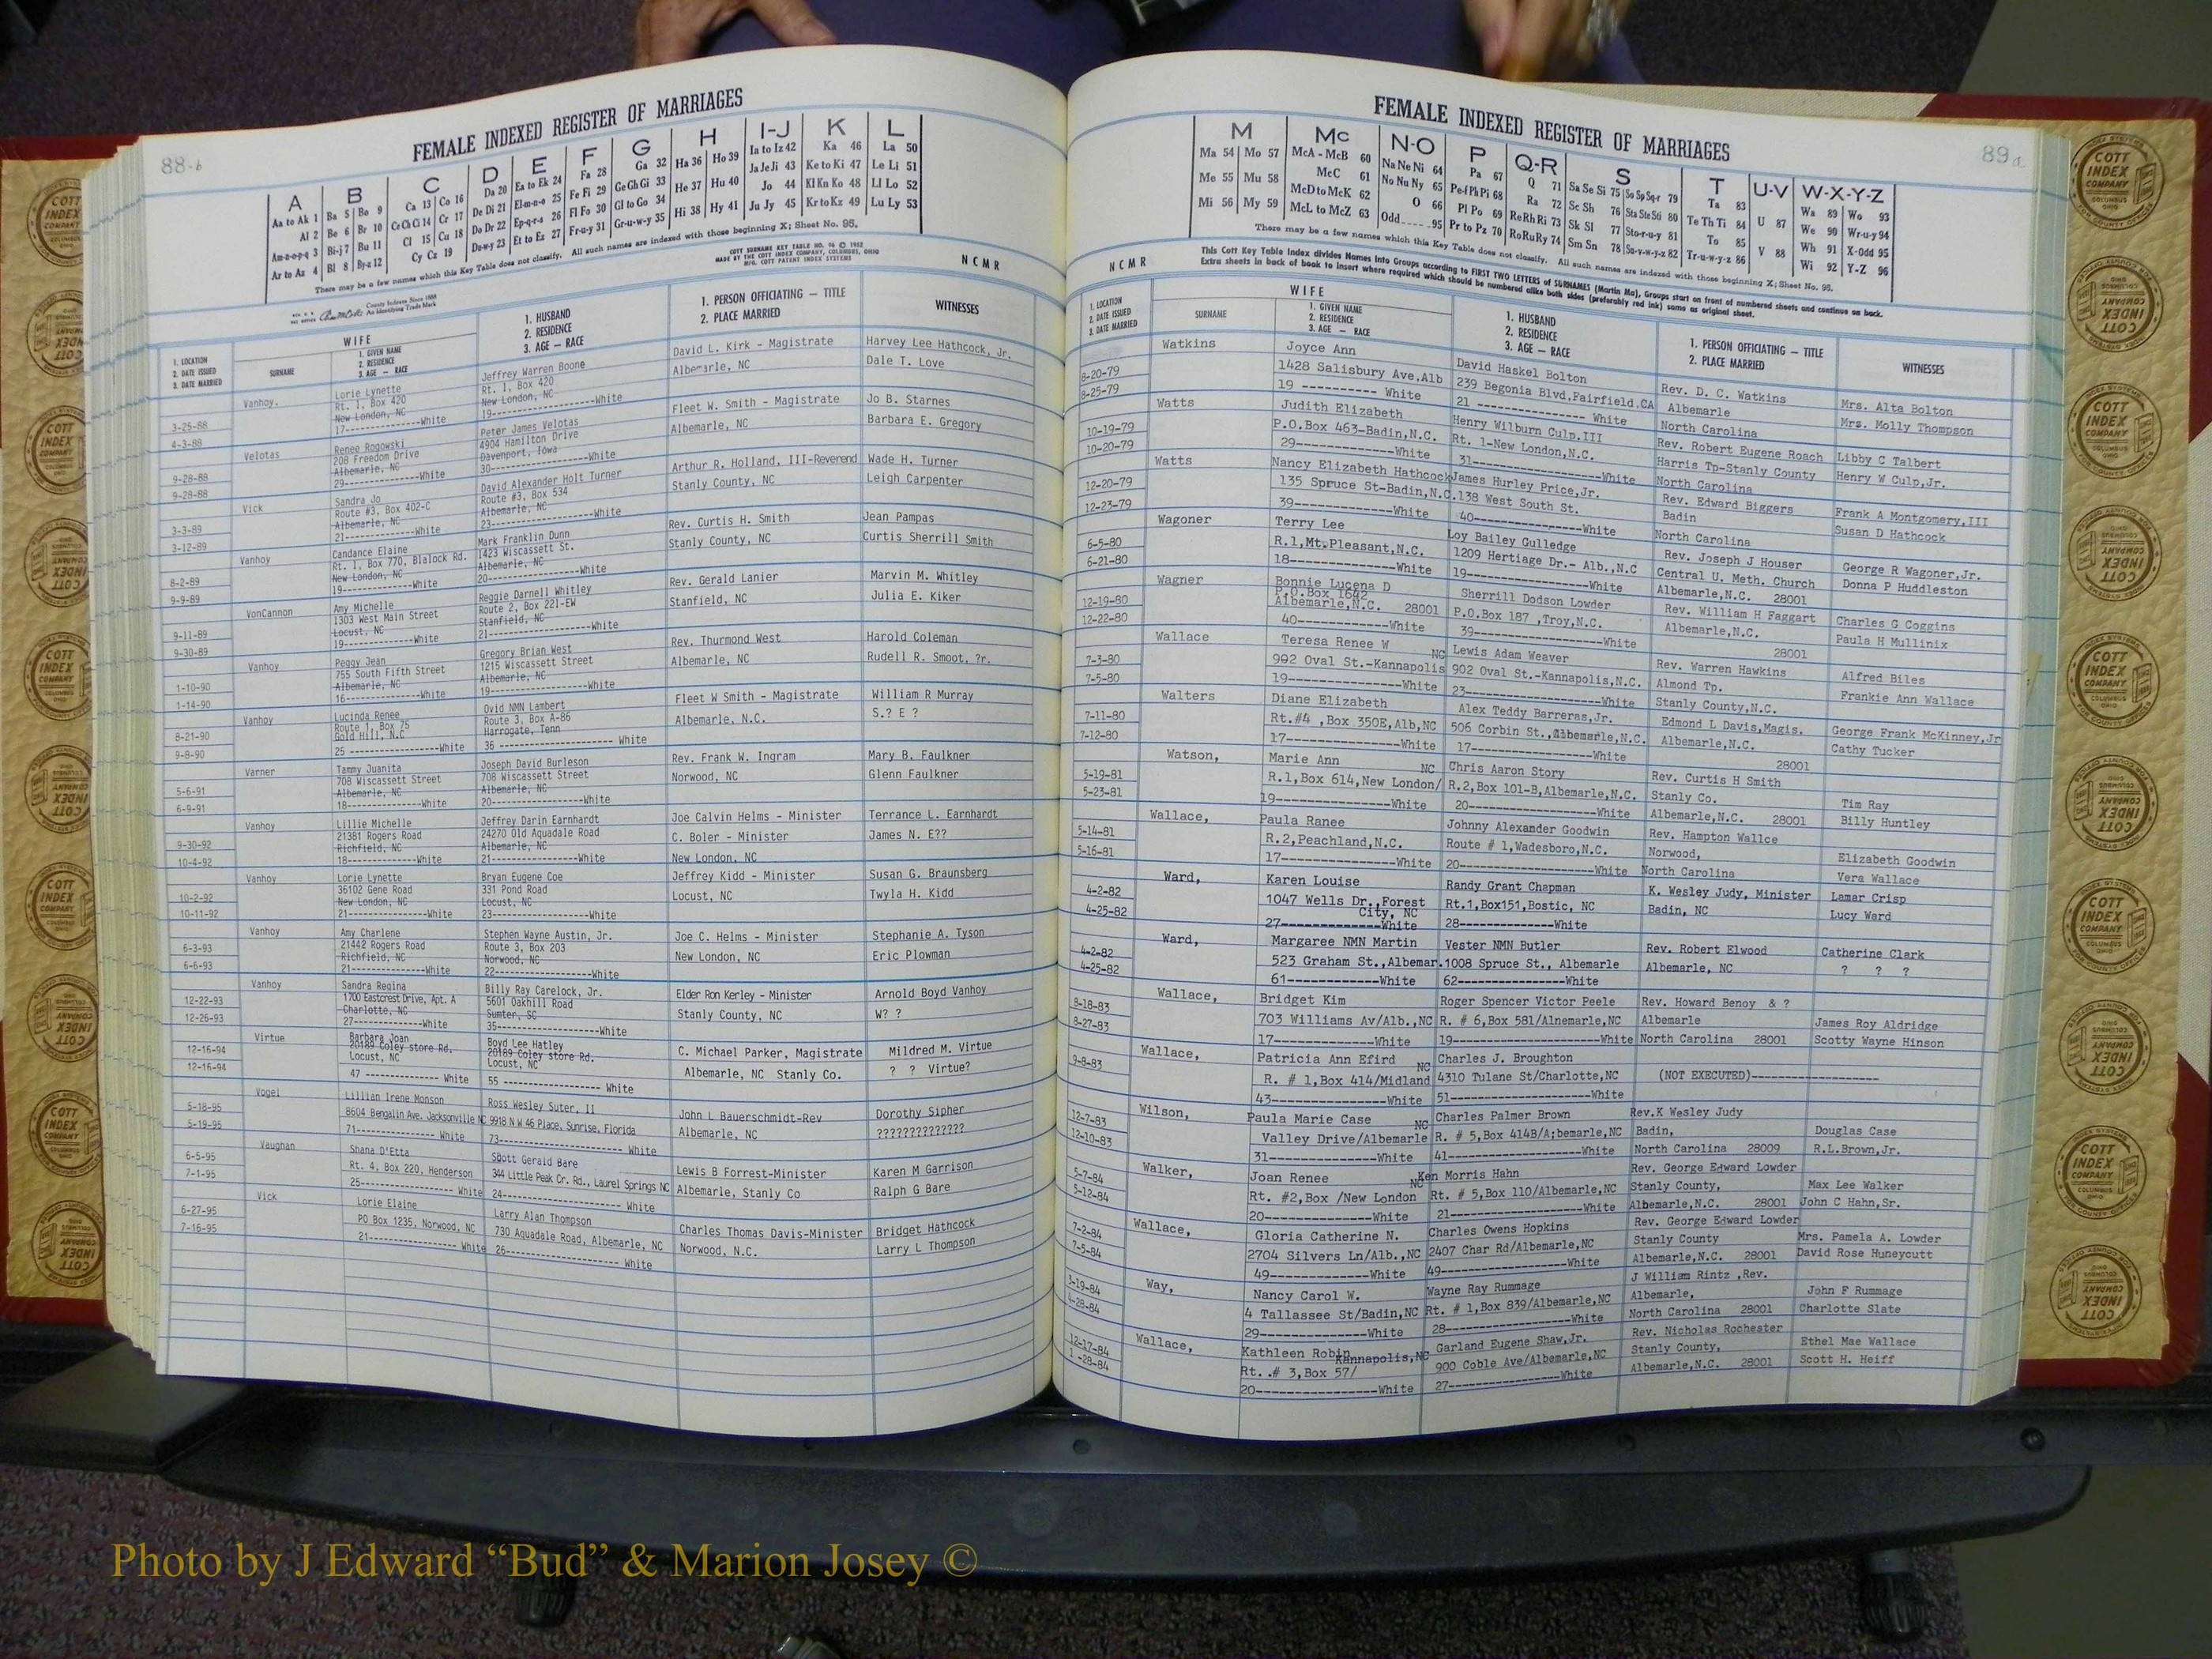 88-b
FEMALE INDEXED REGISTER OF MARRIAGES
A B C D E F G H I-J K L
Aa to Ak 1 Ba 5 Bo 9 Ca 13 Co 16 Da 20 Ea to Ek 24 Fa 28 Ga 32 Ha 36 Ho 39 Ia to Iz 42 Ka 46 La 50
Al 2 Be 6 Br 10 Ce Ch Ci 14 Cr 17 De Di 21 El-m-n-o 25 Fe Fi 29 Ge Gh Gi 33 He 37 Hu 40 Ja Je Ji 43 Ke to Ki 47 Le Li 51
Am-n-o-p-q 3 Bi-j 7 Bu 11 Cl 15 Cu 18 Do Dr 22 Ep-q-r-s 26 Fl Fo 30 Gl to Go 34 Hi 38 Hy 41 Jo 44 Kl Kn Ko 48 Ll Lo 52
Ar to Az 4 Bl 8 By-z 12 Cy Cz 19 Du-w-y 23 Et to Ez 27 Fr-u-y 31 Gr-u-w-y 35 Ju Jy 45 Kr to Kz 49 Lu Ly 53
There may be a few names which this Key Table does not classify. All such names are indexed with those beginning X; Sheet No. 95.
COTT SURNAME KEY TABLE NO. 96 © 1982
MADE BY THE COTT INDEX COMPANY, COLUMBUS, OHIO
MFG. COTT PATENT INDEX SYSTEMS
County Indexes Since 1888
An Identifying Trade Mark
N C M R
1. LOCATION
2. DATE ISSUED
3. DATE MARRIED
WIFE
SURNAME
1. GIVEN NAME
2. RESIDENCE
3. AGE — RACE
1. HUSBAND
2. RESIDENCE
3. AGE — RACE
1. PERSON OFFICIATING — TITLE
2. PLACE MARRIED
WITNESSES
Vanhoy, Lorie Lynette Jeffrey Warren Boone David L. Kirk - Magistrate Harvey Lee Hathcock, Jr.
Rt. 1, Box 420 Rt. 1, Box 420 Albemarle, NC Dale T. Love
3-25-88 New London, NC New London, NC
4-3-88 17------------White 19------------White
Velotas Renee Rogowski Peter James Velotas Fleet W. Smith - Magistrate Jo B. Starnes
208 Freedom Drive 4904 Hamilton Drive Albemarle, NC Barbara E. Gregory
9-28-88 Albemarle, NC Davenport, Iowa
9-28-88 29------------White 30------------White
Vick Sandra Jo David Alexander Holt Turner Arthur R. Holland, III-Reverend Wade H. Turner
Route #3, Box 402-C Route #3, Box 534 Stanly County, NC Leigh Carpenter
3-3-89 Albemarle, NC Albemarle, NC
3-12-89 21------------White 23------------White
Vanhoy Candance Elaine Mark Franklin Dunn Rev. Curtis H. Smith Jean Pampas
Rt. 1, Box 770, Blalock Rd. 1423 Wiscassett St. Stanly County, NC Curtis Sherrill Smith
8-2-89 New London, NC Albemarle, NC
9-9-89 19------------White 20------------White
VonCannon Amy Michelle Reggie Darnell Whitley Rev. Gerald Lanier Marvin M. Whitley
1303 West Main Street Route 2, Box 221-EW Stanfield, NC Julia E. Kiker
9-11-89 Locust, NC Stanfield, NC
9-30-89 19------------White 21------------White
Vanhoy Peggy Jean Gregory Brian West Rev. Thurmond West Harold Coleman
755 South Fifth Street 1215 Wiscassett Street Albemarle, NC Rudell R. Smoot, ?r.
1-10-90 Albemarle, NC Albemarle, NC
1-14-90 16------------White 19------------White
Vanhoy Lucinda Renee Ovid NMN Lambert Fleet W Smith - Magistrate William R Murray
Route 1, Box 75 Route 3, Box A-86 Albemarle, N.C. S.? E ?
8-21-90 Gold Hill, N.C Harrogate, Tenn
9-8-90 25 ------------White 36 ------------ White
Varner Tammy Juanita Joseph David Burleson Rev. Frank W. Ingram Mary B. Faulkner
708 Wiscassett Street 708 Wiscassett Street Norwood, NC Glenn Faulkner
5-6-91 Albemarle, NC Albemarle, NC
6-9-91 18------------White 20------------White
Vanhoy Lillie Michelle Jeffrey Darin Earnhardt Joe Calvin Helms - Minister Terrance L. Earnhardt
21381 Rogers Road 24270 Old Aquadale Road C. Boler - Minister James N. E??
9-30-92 Richfield, NC Albemarle, NC
10-4-92 18------------White 21------------White New London, NC
Vanhoy Lorie Lynette Bryan Eugene Coe Jeffrey Kidd - Minister Susan G. Braunsberg
36102 Gene Road 331 Pond Road Locust, NC Twyla H. Kidd
10-2-92 New London, NC Locust, NC
10-11-92 21------------White 23------------White
Vanhoy Amy Charlene Stephen Wayne Austin, Jr. Joe C. Helms - Minister Stephanie A. Tyson
6-3-93 21442 Rogers Road Route 3, Box 203 New London, NC Eric Plowman
6-6-93 Richfield, NC Norwood, NC
21------------White 22------------White
Vanhoy Sandra Regina Billy Ray Carelock, Jr. Elder Ron Kerley - Minister Arnold Boyd Vanhoy
12-22-93 1700 Eastcrest Drive, Apt. A 5601 Oakhill Road Stanly County, NC W? ?
12-26-93 Charlotte, NC Sumter, SC
27------------White 35------------White
Virtue Barbara Joan Boyd Lee Hatley C. Michael Parker, Magistrate Mildred M. Virtue
12-16-94 20189 Coley store Rd. 20189 Coley store Rd. Albemarle, NC Stanly Co. ? ? Virtue?
12-16-94 Locust, NC Locust, NC
47 ------------ White 55 ------------ White
Vogel Lillian Irene Monson Ross Wesley Suter, II John L Bauerschmidt-Rev Dorothy Sipher
5-18-95 8604 Bengalin Ave. Jacksonville NC 9918 N W 46 Place, Sunrise, Florida Albemarle, NC ??????????????
5-19-95 71------------ White 73------------ White
Vaughan Shana D'Etta Sbott Gerald Bare Lewis B Forrest-Minister Karen M Garrison
6-5-95 Rt. 4, Box 220, Henderson 344 Little Peak Cr. Rd., Laurel Springs NC Albemarle, Stanly Co Ralph G Bare
7-1-95 25------------ White 24------------ White
Vick Lorie Elaine Larry Alan Thompson Charles Thomas Davis-Minister Bridget Hathcock
6-27-95 PO Box 1235, Norwood, NC 730 Aquadale Road, Albemarle, NC Norwood, N.C. Larry L Thompson
7-16-95 21------------ White 26------------ White
89a
FEMALE INDEXED REGISTER OF MARRIAGES
M Mc N-O P Q-R S T U-V W-X-Y-Z
Ma 54 Mo 57 McA - McB 60 Na Ne Ni 64 Pa 67 Q 71 Sa Se Si 75 So Sp Sq-r 79 Ta 83 U 87 Wa 89 Wo 93
Me 55 Mu 58 McC 61 No Nu Ny 65 Pe-f Ph Pi 68 Ra 72 Sc Sh 76 Sta Ste Sti 80 Te Th Ti 84 V 88 We 90 Wr-u-y 94
Mi 56 My 59 McD to McK 62 O 66 Pl Po 69 Re Rh Ri 73 Sk Sl 77 Sto-r-u-y 81 To 85 Wh 91 X-Odd 95
McL to McZ 63 Odd 95 Pr to Pz 70 Ro Ru Ry 74 Sm Sn 78 Su-v-w-y-z 82 Tr-u-w-y-z 86 Wi 92 Y-Z 96
There may be a few names which this Key Table does not classify. All such names are indexed with those beginning X; Sheet No. 95.
This Cott Key Table Index divides Names into Groups according to FIRST TWO LETTERS of SURNAMES (Martin Ma), Groups start on front of numbered sheets and continue on back.
Extra sheets in back of book to insert where required which should be numbered alike both sides (preferably red ink) same as original sheet.
N C M R
1. LOCATION
2. DATE ISSUED
3. DATE MARRIED
WIFE
SURNAME
1. GIVEN NAME
2. RESIDENCE
3. AGE — RACE
1. HUSBAND
2. RESIDENCE
3. AGE — RACE
1. PERSON OFFICIATING — TITLE
2. PLACE MARRIED
WITNESSES
Watkins Joyce Ann David Haskel Bolton Rev. D. C. Watkins Mrs. Alta Bolton
8-20-79 1428 Salisbury Ave,Alb 239 Begonia Blvd,Fairfield.CA Albemarle Mrs. Molly Thompson
8-25-79 19 ---------- White 21 -------------- White North Carolina
Watts Judith Elizabeth Henry Wilburn Culp,III Rev. Robert Eugene Roach Libby C Talbert
10-19-79 P.O.Box 463-Badin,N.C. Rt. 1-New London,N.C. Harris Tp-Stanly County Henry W Culp,Jr.
10-20-79 29--------------White 31--------------White North Carolina
Watts Nancy Elizabeth Hathcock James Hurley Price,Jr. Rev. Edward Biggers Frank A Montgomery,III
12-20-79 135 Spruce St-Badin,N.C. 138 West South St. Badin Susan D Hathcock
12-23-79 39--------------White 40--------------White North Carolina
Wagoner Terry Lee Loy Bailey Gulledge Rev. Joseph J Houser George R Wagoner,Jr.
6-5-80 R.1,Mt.Pleasant,N.C. 1209 Hertiage Dr.- Alb.,N.C Central U. Meth. Church Donna P Huddleston
6-21-80 18--------------White 19--------------White Albemarle,N.C. 28001
Wagner Bonnie Lucena D Sherrill Dodson Lowder Rev. William H Faggart Charles G Coggins
12-19-80 P.O.Box 1642 P.O.Box 187 ,Troy,N.C. Albemarle,N.C. Paula H Mullinix
Albemarle,N.C. 28001
12-22-80 40--------------White 39--------------White 28001
Wallace Teresa Renee W Lewis Adam Weaver Rev. Warren Hawkins Alfred Biles
7-3-80 902 Oval St.-Kannapolis NC 902 Oval St.-Kannapolis,N.C. Almond Tp. Frankie Ann Wallace
7-5-80 19--------------White 23--------------White Stanly County,N.C.
Walters Diane Elizabeth Alex Teddy Barreras,Jr. Edmond L Davis,Magis. George Frank McKinney,Jr
7-11-80 Rt.#4 ,Box 350E,Alb,NC 506 Corbin St.,Albemarle,N.C. Albemarle,N.C. Cathy Tucker
7-12-80 17--------------White 17--------------White 28001
Watson, Marie Ann Chris Aaron Story Rev. Curtis H Smith Tim Ray
5-19-81 R.1,Box 614,New London/ NC R.2,Box 101-B,Albemarle,N.C. Stanly Co. Billy Huntley
5-23-81 19--------------White 20--------------White Albemarle,N.C. 28001
Wallace, Paula Ranee Johnny Alexander Goodwin Rev. Hampton Wallce Elizabeth Goodwin
5-14-81 R.2,Peachland,N.C. Route # 1,Wadesboro,N.C. Norwood, Vera Wallace
5-16-81 17--------------White 20--------------White North Carolina
Ward, Karen Louise Randy Grant Chapman K. Wesley Judy, Minister Lamar Crisp
4-2-82 1047 Wells Dr.,Forest Rt.1,Box151,Bostic, NC Badin, NC Lucy Ward
4-25-82 City, NC
27--------------White 28--------------White
Ward, Margaree NMN Martin Vester NMN Butler Rev. Robert Elwood Catherine Clark
4-2-82 523 Graham St.,Albemar. 1008 Spruce St., Albemarle Albemarle, NC ? ? ?
4-25-82 61-------------White 62-------------White
Wallace, Bridget Kim Roger Spencer Victor Peele Rev. Howard Benoy & ? James Roy Aldridge
8-18-83 703 Williams Av/Alb.,NC R. # 6,Box 581/Alnemarle,NC Albemarle Scotty Wayne Hinson
8-27-83 17--------------White 19--------------White North Carolina 28001
Wallace, Patricia Ann Efird Charles J. Broughton (NOT EXECUTED)----------------
9-8-83 R. # 1,Box 414/Midland NC 4310 Tulane St/Charlotte,NC
43--------------White 51--------------White
Wilson, Paula Marie Case Charles Palmer Brown Rev.K Wesley Judy Douglas Case
12-7-83 Valley Drive/Albemarle NC R. # 5,Box 414B/A;bemarle,NC Badin, R.L.Brown,Jr.
12-10-83 31--------------White 41--------------White North Carolina 28009
Walker, Joan Renee Ken Morris Hahn Rev. George Edward Lowder Max Lee Walker
5-7-84 Rt. #2,Box /New London NC Rt. # 5,Box 110/Albemarle,NC Stanly County, John C Hahn,Sr.
5-12-84 20--------------White 21--------------White Albemarle,N.C. 28001
Wallace, Gloria Catherine N. Charles Owens Hopkins Rev. George Edward Lowder Mrs. Pamela A. Lowder
7-2-84 2704 Silvers Ln/Alb.,NC 2407 Char Rd/Albemarle,NC Stanly County David Rose Huneycutt
7-5-84 49--------------White 49--------------White Albemarle,N.C. 28001
Way, Nancy Carol W. Wayne Ray Rummage J William Rintz ,Rev. John F Rummage
-19-84 4 Tallassee St/Badin,NC Rt. # 1,Box 839/Albemarle,NC Albemarle, Charlotte Slate
4-28-84 29--------------White 28--------------White North Carolina 28001
Wallace, Kathleen Robin Garland Eugene Shaw,Jr. Rev. Nicholas Rochester Ethel Mae Wallace
12-17-84 Rt..# 3,Box 57/ Kannapolis,NC 900 Coble Ave/Albemarle,NC Stanly County, Scott H. Heiff
1 -28-84 20--------------White 27--------------White Albemarle,N.C. 28001
COTT INDEX COMPANY COLUMBUS OHIO
FOR COUNTY OFFICES
Photo by J Edward “Bud” & Marion Josey ©